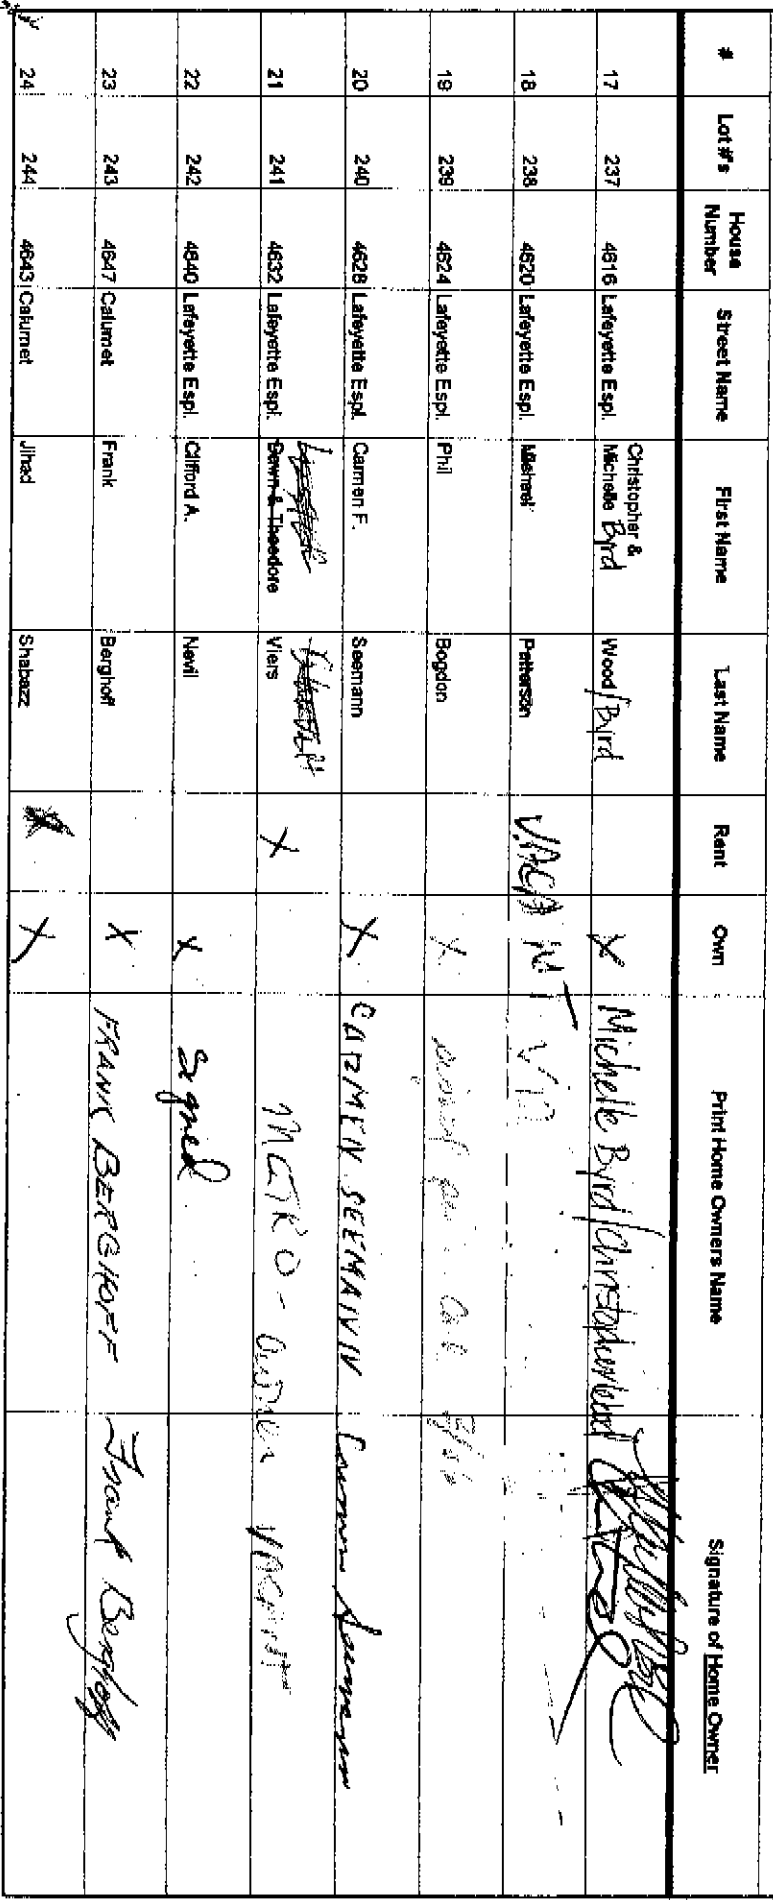 # Lot #'s House Number Street Name First Name Last Name Rent Own Print Home Owners Name Signature of Home Owner
17 237 4616 Lafayette Espl. Christopher & Michelle Byrd Wood/Byrd X Michelle Byrd/
18 238 4620 Lafayette Espl. Michael Patterson VACANT
19 239 4624 Lafayette Espl. Phil Bogdon X
20 240 4628 Lafayette Espl. Carmen F. Seemann X CARMEN SEEMANN Carmen Seemann
21 241 4632 Lafayette Espl. Dawn & Theodore Viers X METRO - Owner VACANT
22 242 4640 Lafayette Espl. Clifford A. Nevil X signed
23 243 4647 Calumet Frank Berghoff X FRANK BERGHOFF Frank Berghoff
24 244 4643 Calumet Jihad Shabazz X